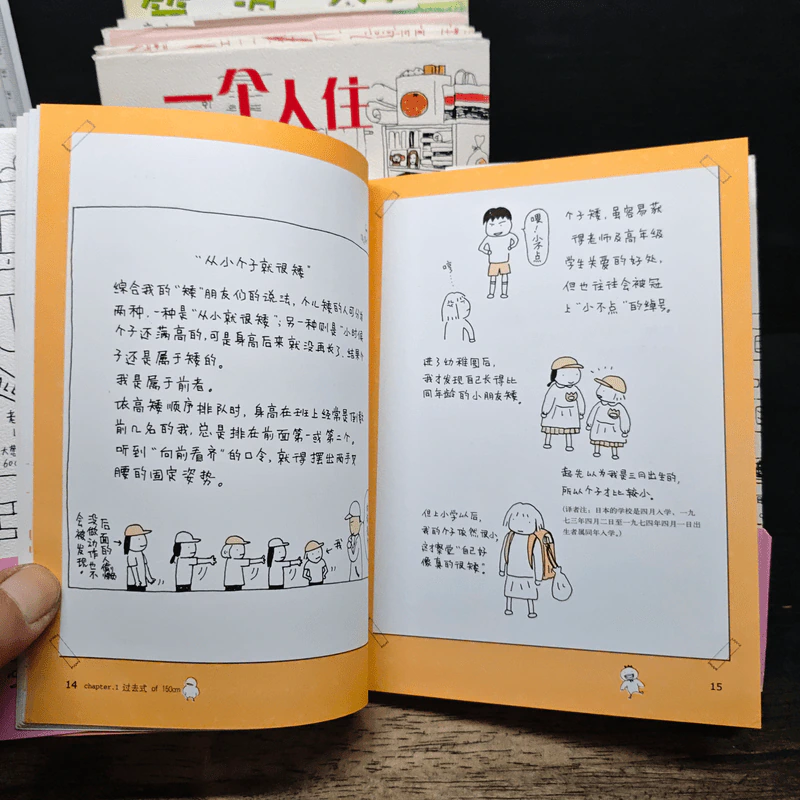 一个人住
"从小个子就很矮"
综合我的"矮"朋友们的说法,个儿矮的人可分为
两种,一种是"从小就很矮";另一种则是"小时候
个子还满高的,可是身高后来就没再长了,结果个
子还是属于矮的。
我是属于前者。
依高矮顺序排队时,身高在班上经常是倒数
前几名的我,总是排在前面第一或第二个。
听到"向前看齐"的口令,就得摆出两手叉
腰的固定姿势。
后面的人偷懒
没做动作也不
会被发现。
我
14 chapter.1 过去式 of 150cm
嘿!小不点
哼…
个子矮,虽容易获
得老师及高年级
学生关爱的好处,
但也往往会被冠
上"小不点"的绰号。
进了幼稚园后,
我才发现自己长得比
同年龄的小朋友矮。
起先以为我是三月出生的,
所以个子才比较小。
(译者注:日本的学校是四月入学、一九
七三年四月二日至一九七四年四月一日出
生者属同年入学。)
但上小学以后,
我的个子依然很小,
这才警觉"自己好
像真的很矮"。
15